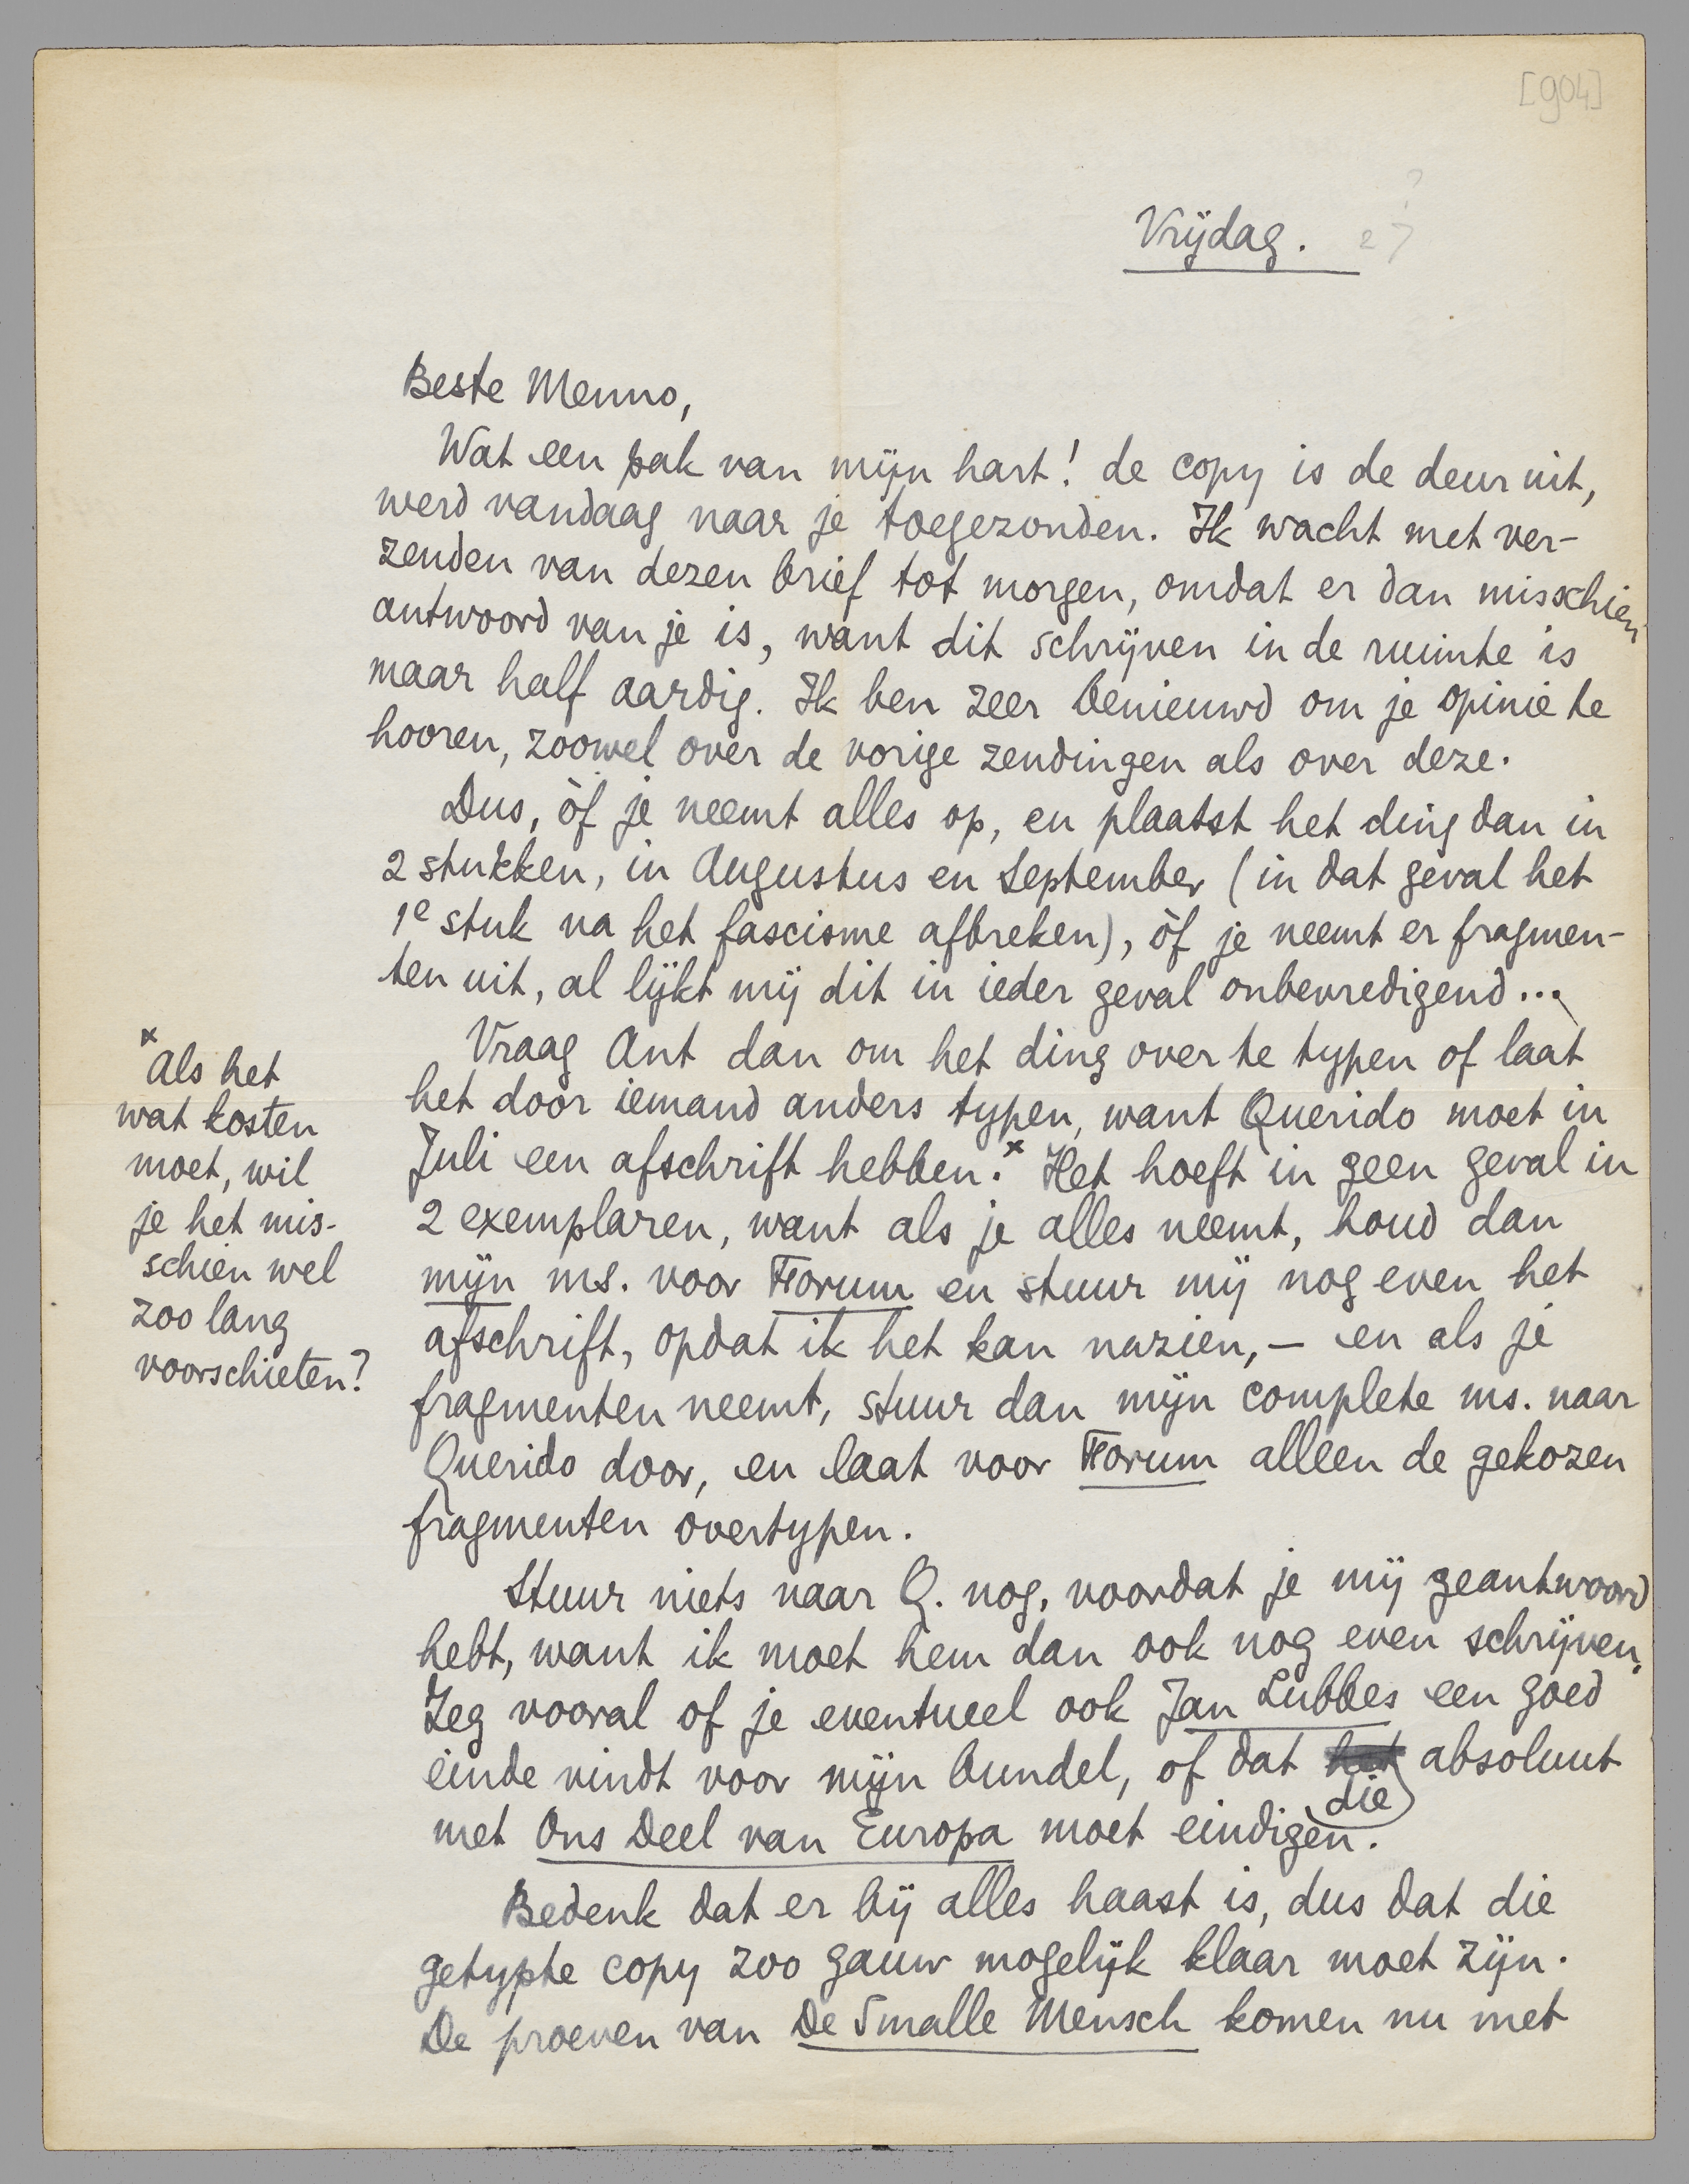 [904]
?
Vrijdag. 27
Beste Menno,
Wat een pak van mijn hart! de copy is de deur uit,
werd vandaag naar je toegezonden. Ik wacht met ver-
zenden van dezen brief tot morgen, omdat er dan misschien
antwoord van je is, want dit schrijven in de ruimte is
maar half aardig. Ik ben zeer benieuwd om je opinie te
hooren, zoowel over de vorige zendingen als over deze.
Dus, òf je neemt alles op, en plaatst het ding dan in
2 stukken, in Augustus en September (in dat geval het
1e stuk na het fascisme afbreken), òf je neemt er fragmen-
ten uit, al lijkt mij dit in ieder geval onbevredigend...
Vraag Ant dan om het ding over te typen of laat
het door iemand anders typen, want Querido moet in
Juli een afschrift hebben.x Het hoeft in geen geval in
2 exemplaren, want als je alles neemt, houd dan
mijn ms. voor Forum en stuur mij nog even het
afschrift, opdat ik het kan nazien, — en als je
fragmenten neemt, stuur dan mijn complete ms. naar
Querido door, en laat voor Forum alleen de gekozen
fragmenten overtypen.
Stuur niets naar Q. nog, voordat je mij geantwoord
hebt, want ik moet hem dan ook nog even schrijven.
Zeg vooral of je eventueel ook Jan Lubbes een goed
einde vindt voor mijn bundel, of dat het absoluut
die
met Ons Deel van Europa moet eindigen.
Bedenk dat er bij alles haast is, dus dat die
getypte copy zoo gauw mogelijk klaar moet zijn.
De proeven van De Smalle Mensch komen nu met
x Als het
wat kosten
moet, wil
je het mis-
schien wel
zoo lang
voorschieten?